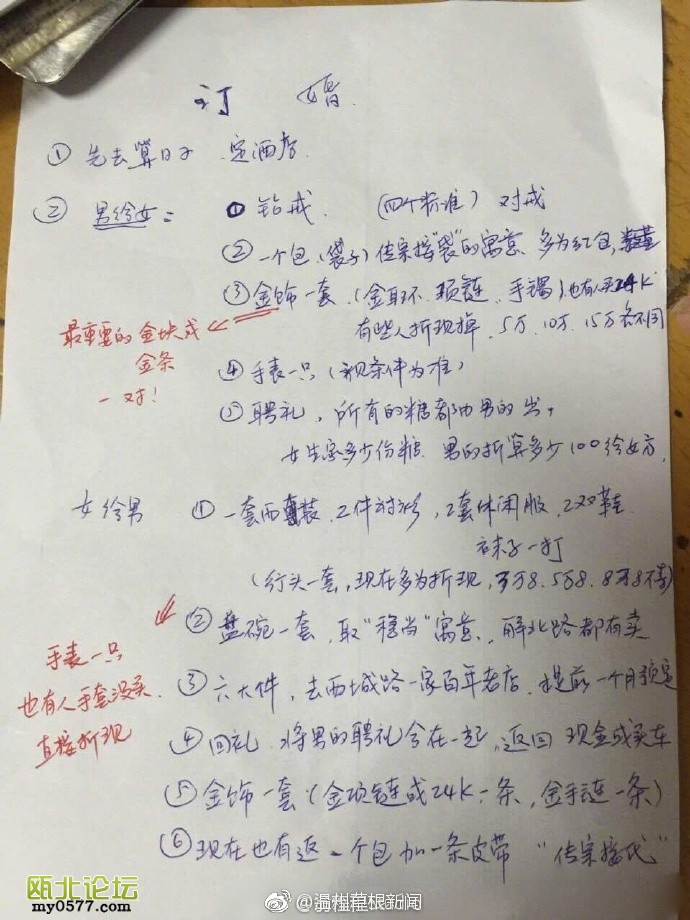 订 婚
① 先去算日子 定酒店
② 男给女： ① 钻戒 (四个标准) 对戒
② 一个包(袋子)传宗接“袋”的寓意 多为红包,
③ 金饰一套 (金耳环 项链 手镯)也有人买24K
有些人折现掉 5万 10万 15万各不同
最重要的金块或
金条
一对!
④ 手表一只(视条件为准)
⑤ 聘礼, 所有的糖都由男的出,
女生家多少份糖 男的折算多少100给女方,
女给男 ① 一套西装, 2件衬衫, 2套休闲服, 2双鞋
袜子一打
(行头一套, 现在多为折现, 3万8. 5万8. 8万8不等)
② 盘碗一套, 取“稳当”寓意, 解北路都有卖
手表一只
也有人手表没买
直接折现
③ 六大件, 去西城路一家百年老店, 提前一个月预定
④ 回礼 将男的聘礼合在一起, 返回 现金或买车
⑤ 金饰一套(金项链或24K一条, 金手链一条)
⑥ 现在也有返一个包加一条皮带 “传宗接代”
瓯北论坛
my0577.com
@温州草根新闻